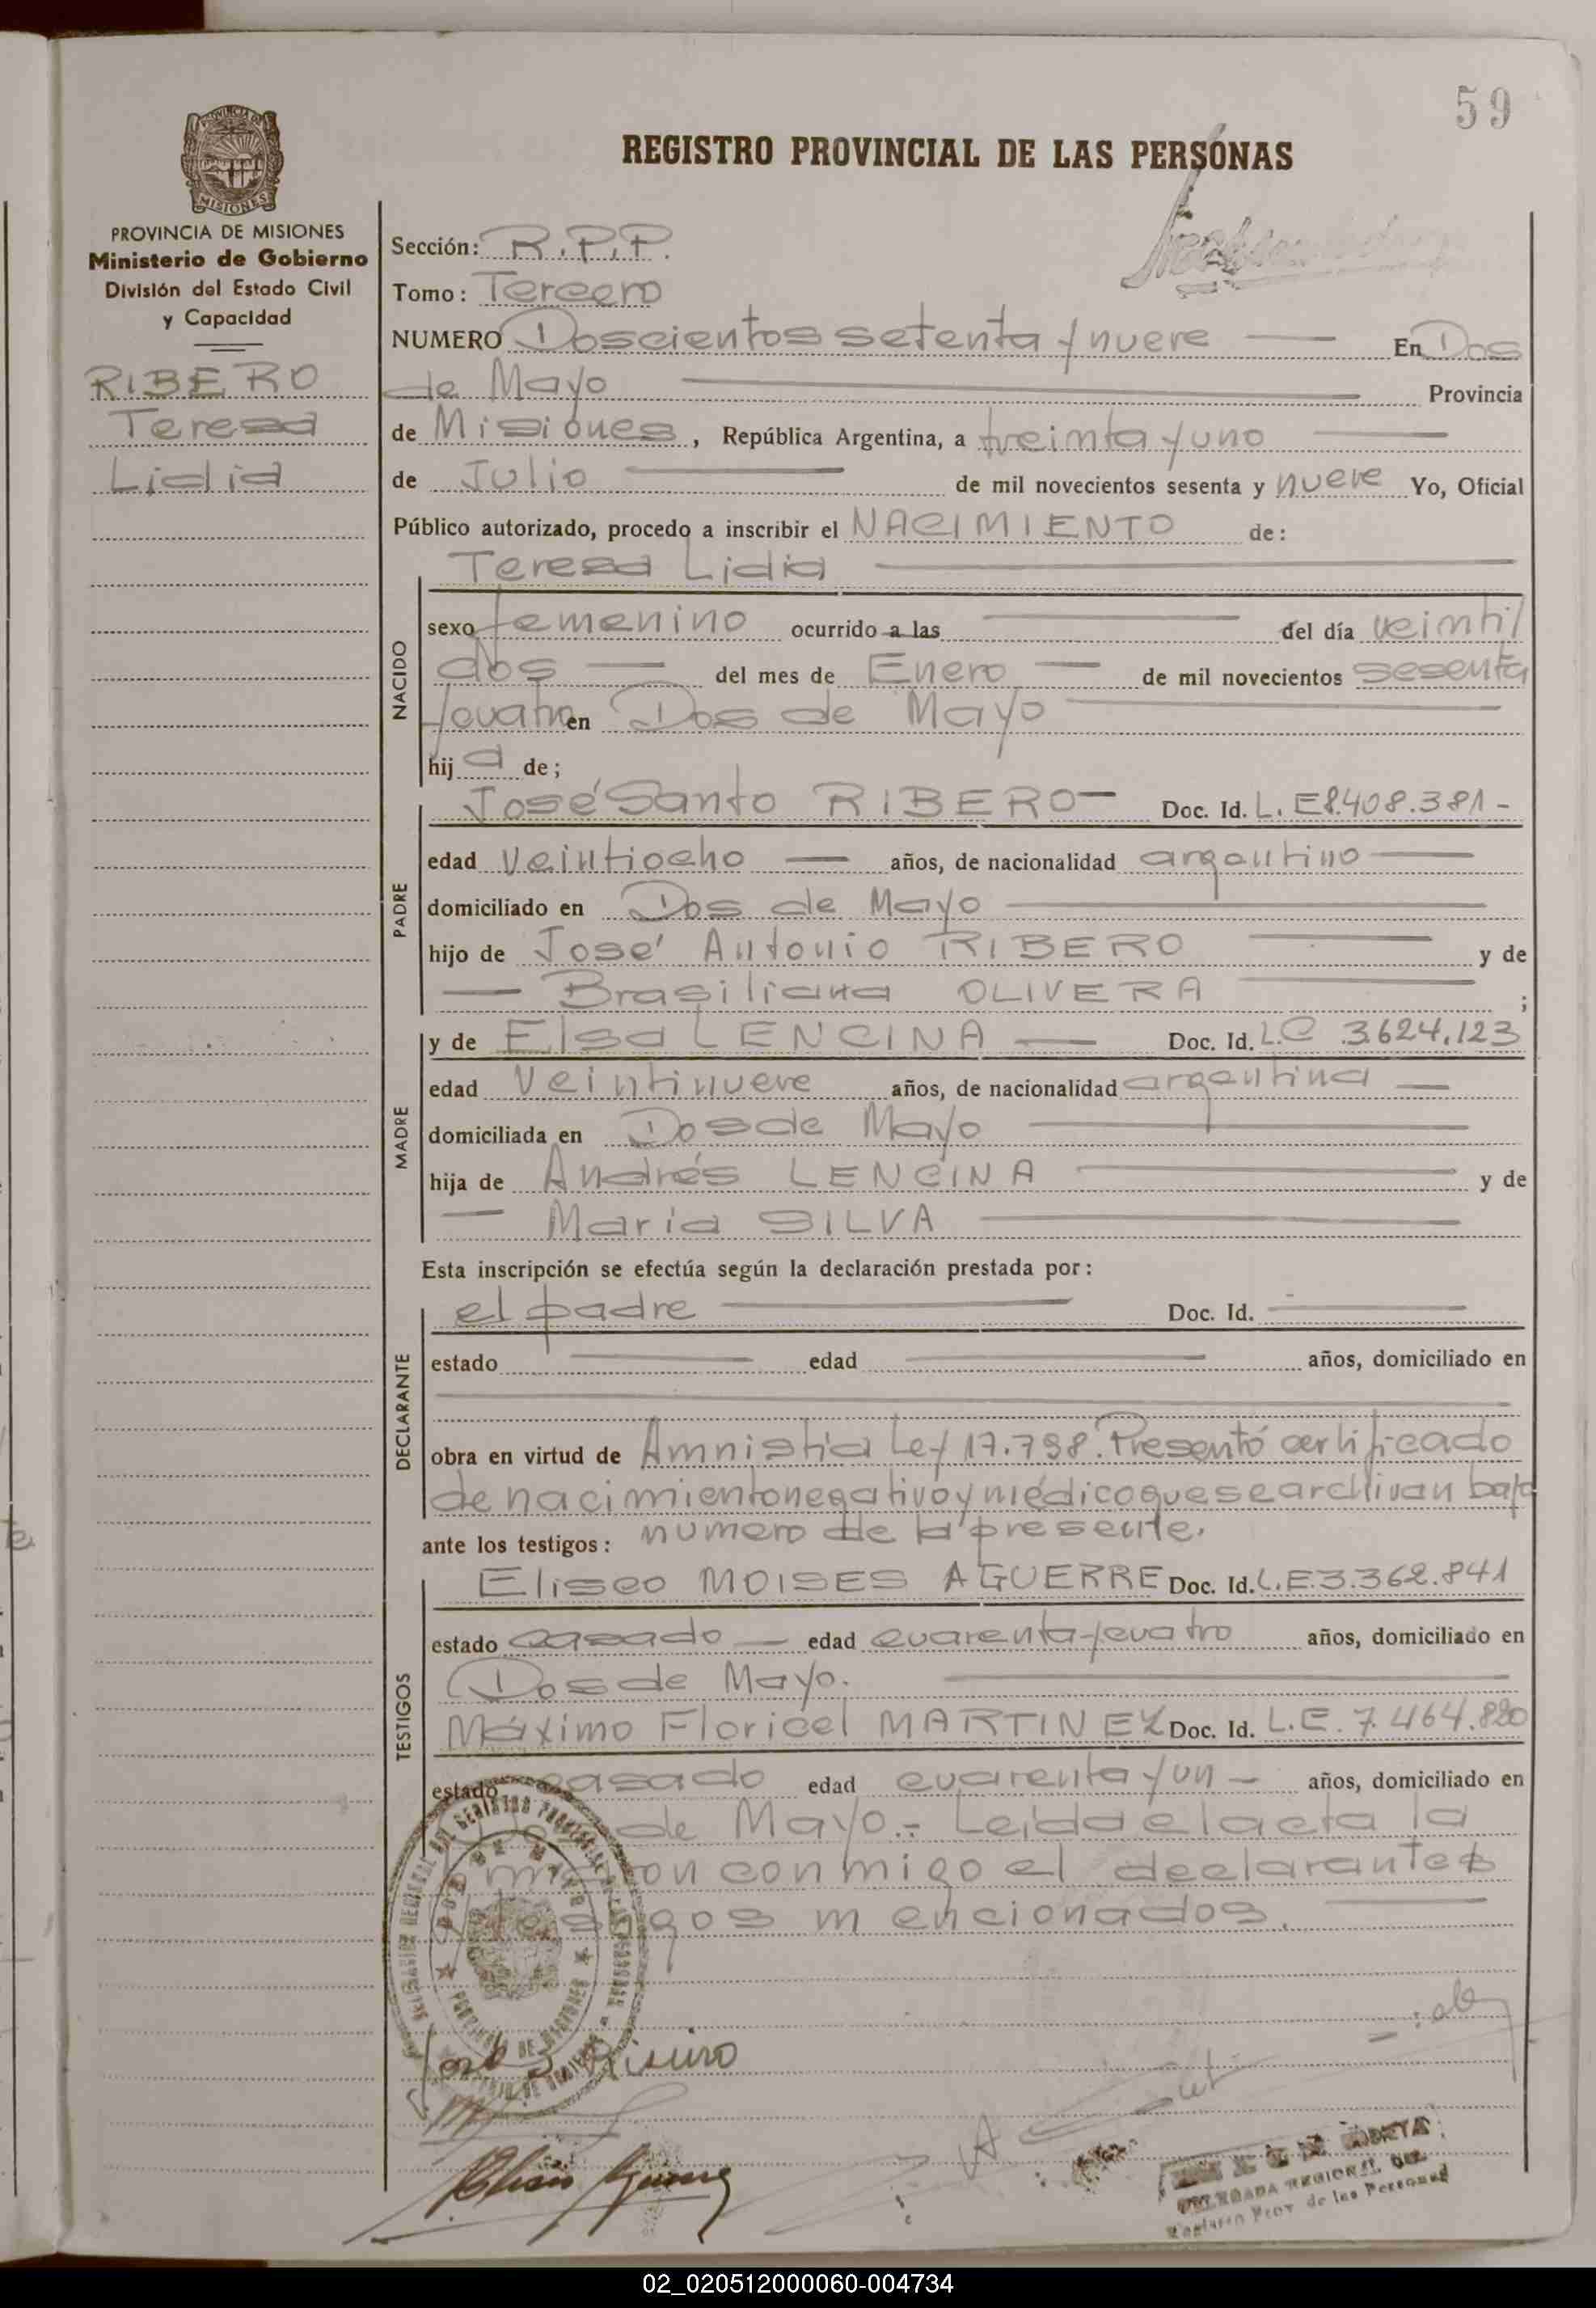 59
REGISTRO PROVINCIAL DE LAS PERSONAS
PROVINCIA DE MISIONES
Ministerio de Gobierno
División del Estado Civil
y Capacidad
RIBERO
Teresa
Lidia
Sección: R.P.P.
Tomo: Tercero
NUMERO Doscientos setenta y nueve En Dos
de Mayo Provincia
de Misiones, República Argentina, a treinta y uno
de Julio de mil novecientos sesenta y nueve Yo, Oficial
Público autorizado, procedo a inscribir el NACIMIENTO de:
Teresa Lidia
NACIDO
sexo femenino ocurrido a las del día veinti
dos del mes de Enero de mil novecientos sesenta
y cuatro en Dos de Mayo
hija de;
José Santo RIBERO Doc. Id. L.E 8.408.381-
PADRE
edad veintiocho años, de nacionalidad argentino
domiciliado en Dos de Mayo
hijo de José Antonio RIBERO y de
Brasiliana OLIVERA ;
y de Elsa LENCINA Doc. Id. L.C 3.624.123
MADRE
edad veintinueve años, de nacionalidad argentina
domiciliada en Dos de Mayo
hija de Andrés LENCINA y de
María SILVA
Esta inscripción se efectúa según la declaración prestada por:
el padre Doc. Id.
DECLARANTE
estado edad años, domiciliado en
obra en virtud de Amnistía Ley 17.798. Presentó certificado
de nacimiento negativo y médico que se archivan bajo
ante los testigos: numero de la presente.
TESTIGOS
Eliseo MOISES AGUERRE Doc. Id. L.E. 3.362.841
estado casado edad cuarenta y cuatro años, domiciliado en
Dos de Mayo.
Máximo Floricel MARTINEZ Doc. Id. L.E. 7.464.820
estado casado edad cuarenta y un años, domiciliado en
Dos de Mayo.- Leida el acta la
firmaron conmigo el declarante
testigos mencionados.
DELEGADA REGIONAL DEL
Registro Prov. de las Personas
02_020512000060-004734